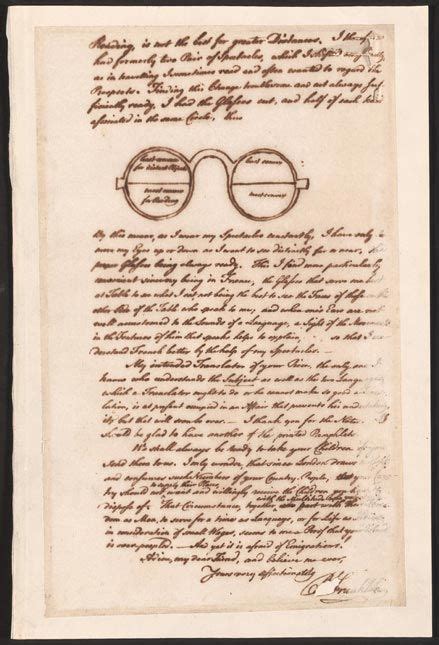 Reading, is not the best for greater Distances. I therefore
had formerly two Pair of Spectacles, which I shifted occasionally,
as in travelling I sometimes read and often wanted to regard the
Prospects. Finding this Change troublesome and not always suf-
ficiently ready, I had the Glasses cut, and half of each kind
associated in the same Circle, thus
least convex
for distant Objects
least convex
most convex
for Reading
most convex
By this means, as I wear my Spectacles constantly, I have only to
move my Eyes up or down as I want to see distinctly far or near, the
proper Glasses being always ready. This I find more particularly
convenient since my being in France, the Glasses that serve me best
at Table to see what I eat, not being the best to see the Faces of those on the
other Side of the Table who speak to me; and when one's Ears are not
well accustomed to the Sounds of a Language, a Sight of the Movements
in the Features of him that speaks helps to explain, so that I un-
derstand French better by the help of my Spectacles.
My intended Translator of your Piece, the only one I
know who understands the Subject as well as the two Languages,
which a Translator ought to do or he cannot make so good a Trans-
lation, is at present occupied in an Affair that prevents his undertaking
it; but that will soon be over. I thank you for the Notes.
I should be glad to have another of the printed Pamphlets
We shall always be ready to take your Children if you
send them to us. I only wonder, that since London draws to itself
and consumes such Numbers of your Country People, that your Coun-
try should not want and willingly receive the Children you have to
dispose of. That Circumstance, together with the
part with their Free-
dom as Men, to serve for a time as Lacqueys, or for Life as Soldiers
in consideration of small Wages, seems to me a Proof that your Island
is over-peopled. And yet it is afraid of Emigrations.
Adieu, my dear Friend, and believe me ever,
Yours very affectionately
B Franklin